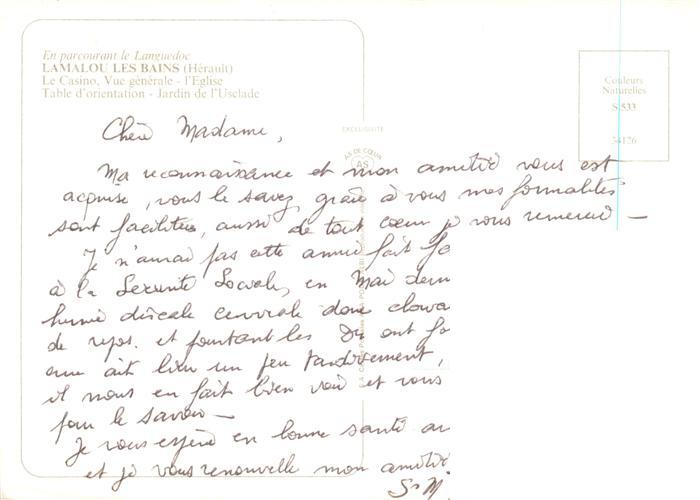 En parcourant le Languedoc
LAMALOU LES BAINS (Hérault)
Le Casino, Vue générale - l'Eglise
Table d'orientation - Jardin de l'Usclade
Couleurs
Naturelles
S 533
34126
EXCLUSIVITE
AS DE CŒUR
AS
Chère Madame,
Ma reconnaissance et mon amitié vous est
acquise, vous le savez, grâce à vous mes formalités
sont facilitées, aussi de tout cœur je vous remercie —
Je n'aurai pas cette année fait
à la Sécurité Sociale, en Mai
discale cervicale donc
de repos. et pourtant les ont
ait lieu un peu tardivement,
il nous en fait bien voir et vous
pour le savoir —
Je vous espère en bonne santé
et je vous renouvelle mon amitié